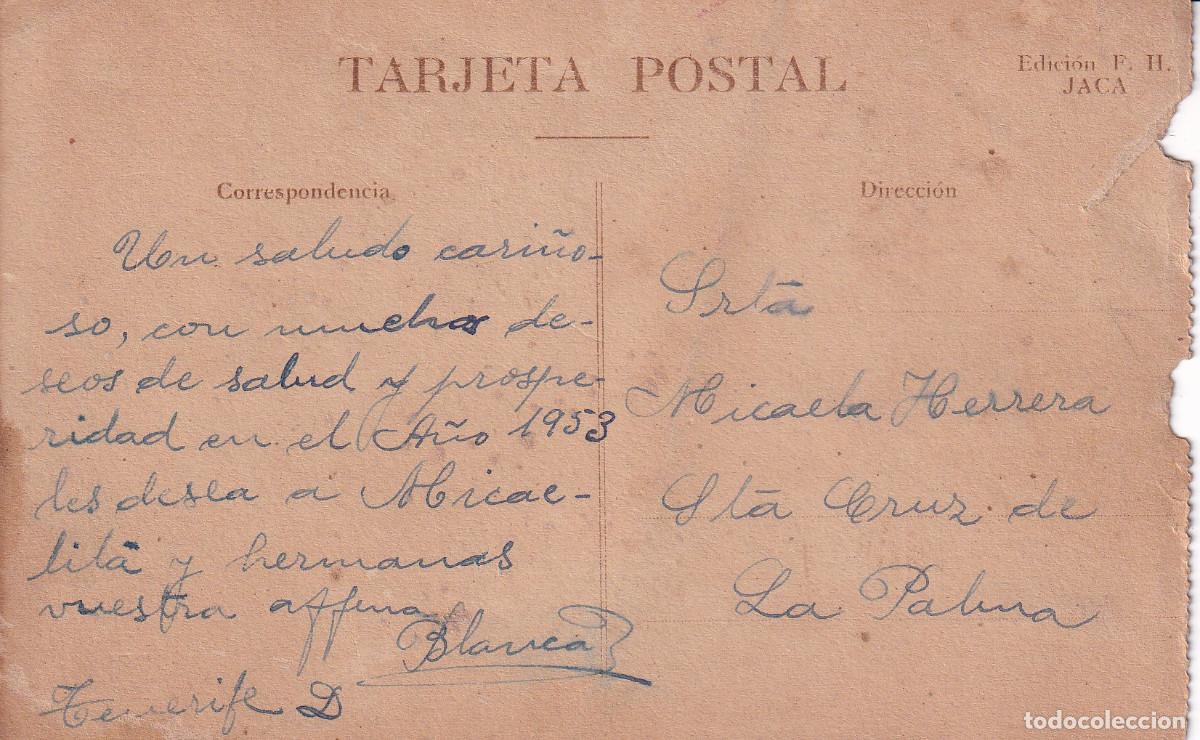 TARJETA POSTAL
Edición F. H.
JACA
Correspondencia
Un saludo cariño-
so, con muchos de-
seos de salud y prospe-
ridad en el Año 1953
les desea a Micae-
lita y hermanas
vuestra affma
Blanca
Tenerife D
Dirección
Srta
Micaela Herrera
Sta Cruz de
La Palma
todocoleccion